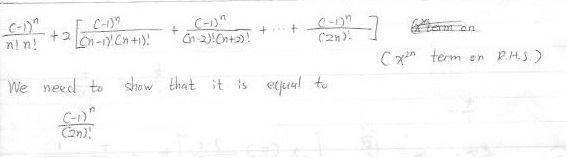 (-1)ⁿ/n!n! + 2[(-1)ⁿ/(n-1)!(n+1)! + (-1)ⁿ/(n-2)!(n+2)! + ··· + (-1)ⁿ/(2n)!]
(x²ⁿ term on R.H.S.)
We need to show that it is equal to
(-1)ⁿ/(2n)!